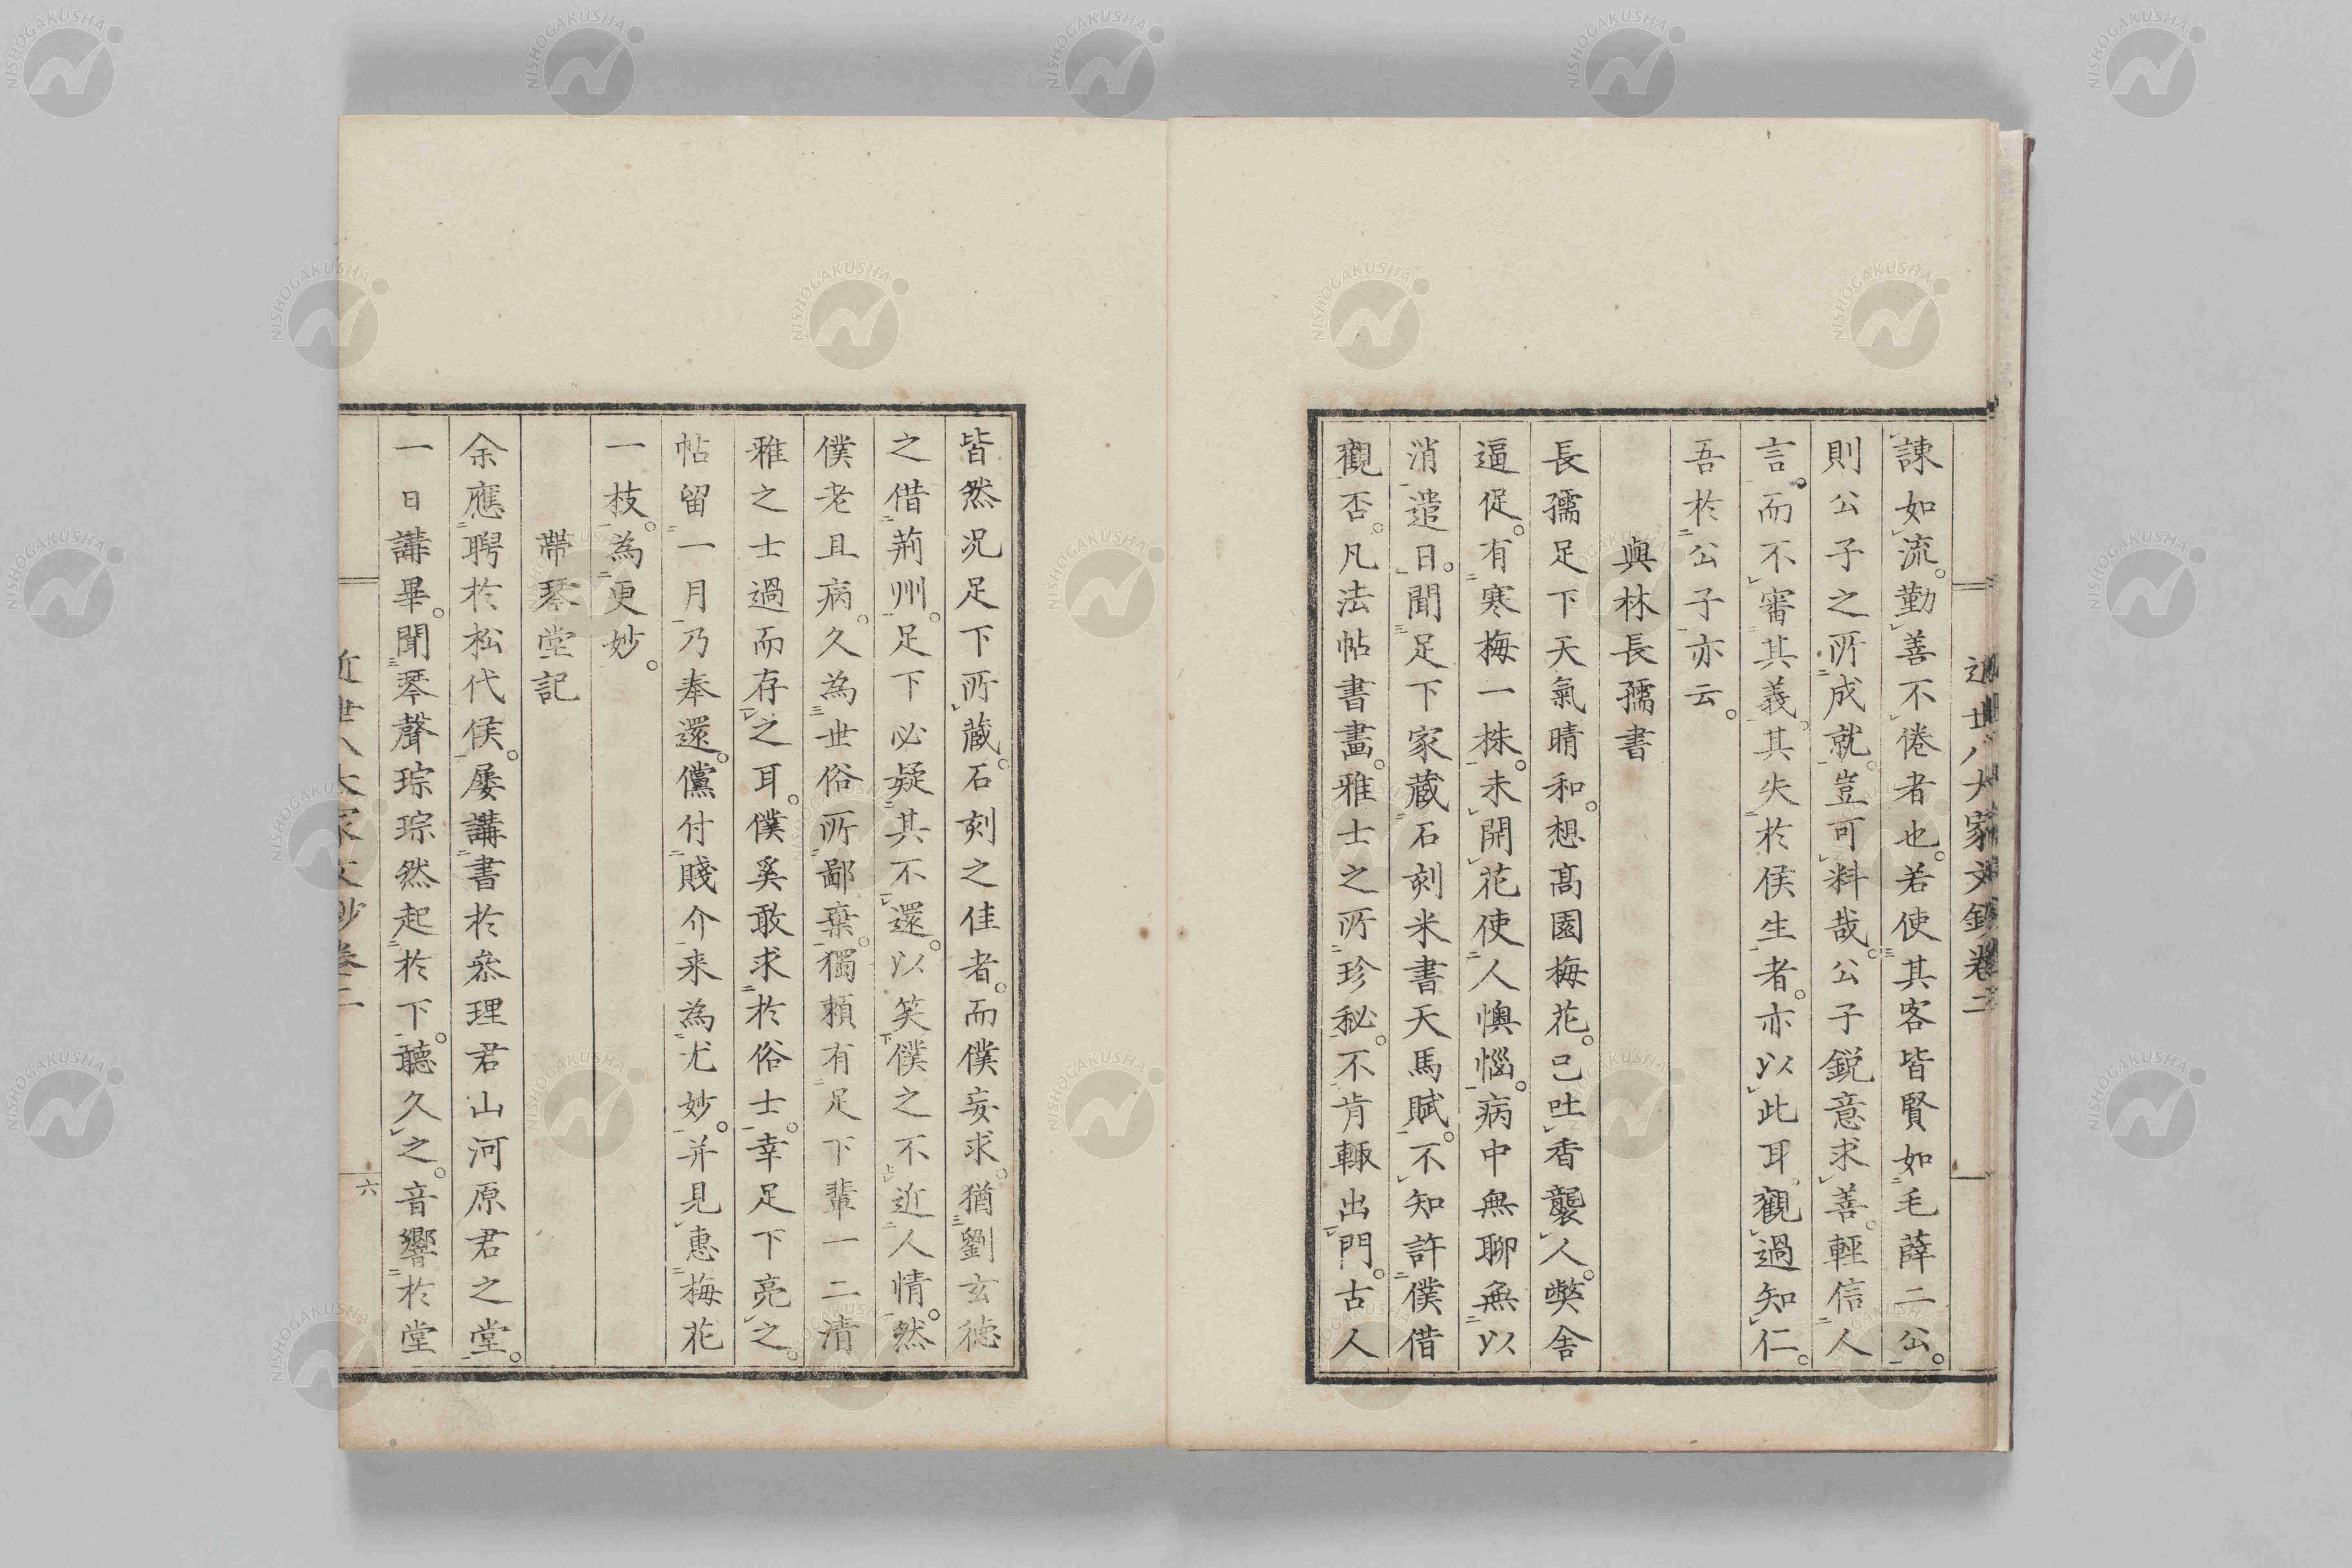 近世八大家文鈔卷二
諫如流。勤善不倦者也。若使其客皆賢如毛薛二公。
則公子之所成就。豈可料哉。公子鋭意求善。輕信人
言。而不審其義。其失於侯生者。亦以此耳。觀過知仁。
吾於公子亦云。
與林長孺書
長孺足下天氣晴和。想髙園梅花。已吐香襲人。弊舍
逼促。有寒梅一株。未開花使人懊惱。病中無聊無以
消遣日。聞足下家藏石刻米書天馬賦。不知許僕借
觀否。凡法帖書畫。雅士之所珍秘。不肯輙出門。古人
皆然况足下所藏。石刻之佳者。而僕妄求。猶劉玄徳
之借荊州。足下必疑其不還。以笑僕之不近人情。然
僕老且病。久為世俗所鄙棄。獨頼有足下輩一二清
雅之士過而存之耳。僕奚敢求於俗士。幸足下亮之。
帖留一月乃奉還。儻付賤介来為尤妙。并見惠梅花
一枝。為更妙。
帶琴堂記
余應聘於松代侯。屡講書於叅理君山河原君之堂。
一日講畢。聞琴聲琮琮然起於下。聽久之。音響於堂
近世八大家文鈔卷二
六
NISHOGAKUSHA